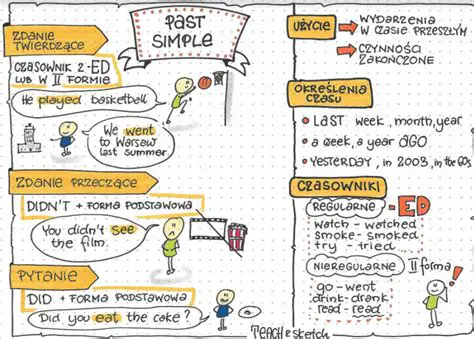 PAST
SIMPLE
ZDANIE
TWIERDZĄCE
CZASOWNIK Z -ED
LUB W II FORMIE
He played basketball.
We went
to Warsaw
last summer
ZDANIE PRZECZĄCE
DIDN'T + FORMA PODSTAWOWA
You didn't see
the film.
PYTANIE
DID + FORMA PODSTAWOWA
Did you eat the cake?
UŻYCIE
WYDARZENIA
W CZASIE PRZESZŁYM
CZYNNOŚCI
ZAKOŃCZONE
OKREŚLENIA
CZASU
LAST week, month, year
a week, a year AGO
YESTERDAY, in 2003, in the 60s
CZASOWNIKI
REGULARNE - ED
watch - watched
smoke - smoked
try - tried ...
NIEREGULARNE II forma
go - went
drink - drank
read - read
TEACH & SKETCH